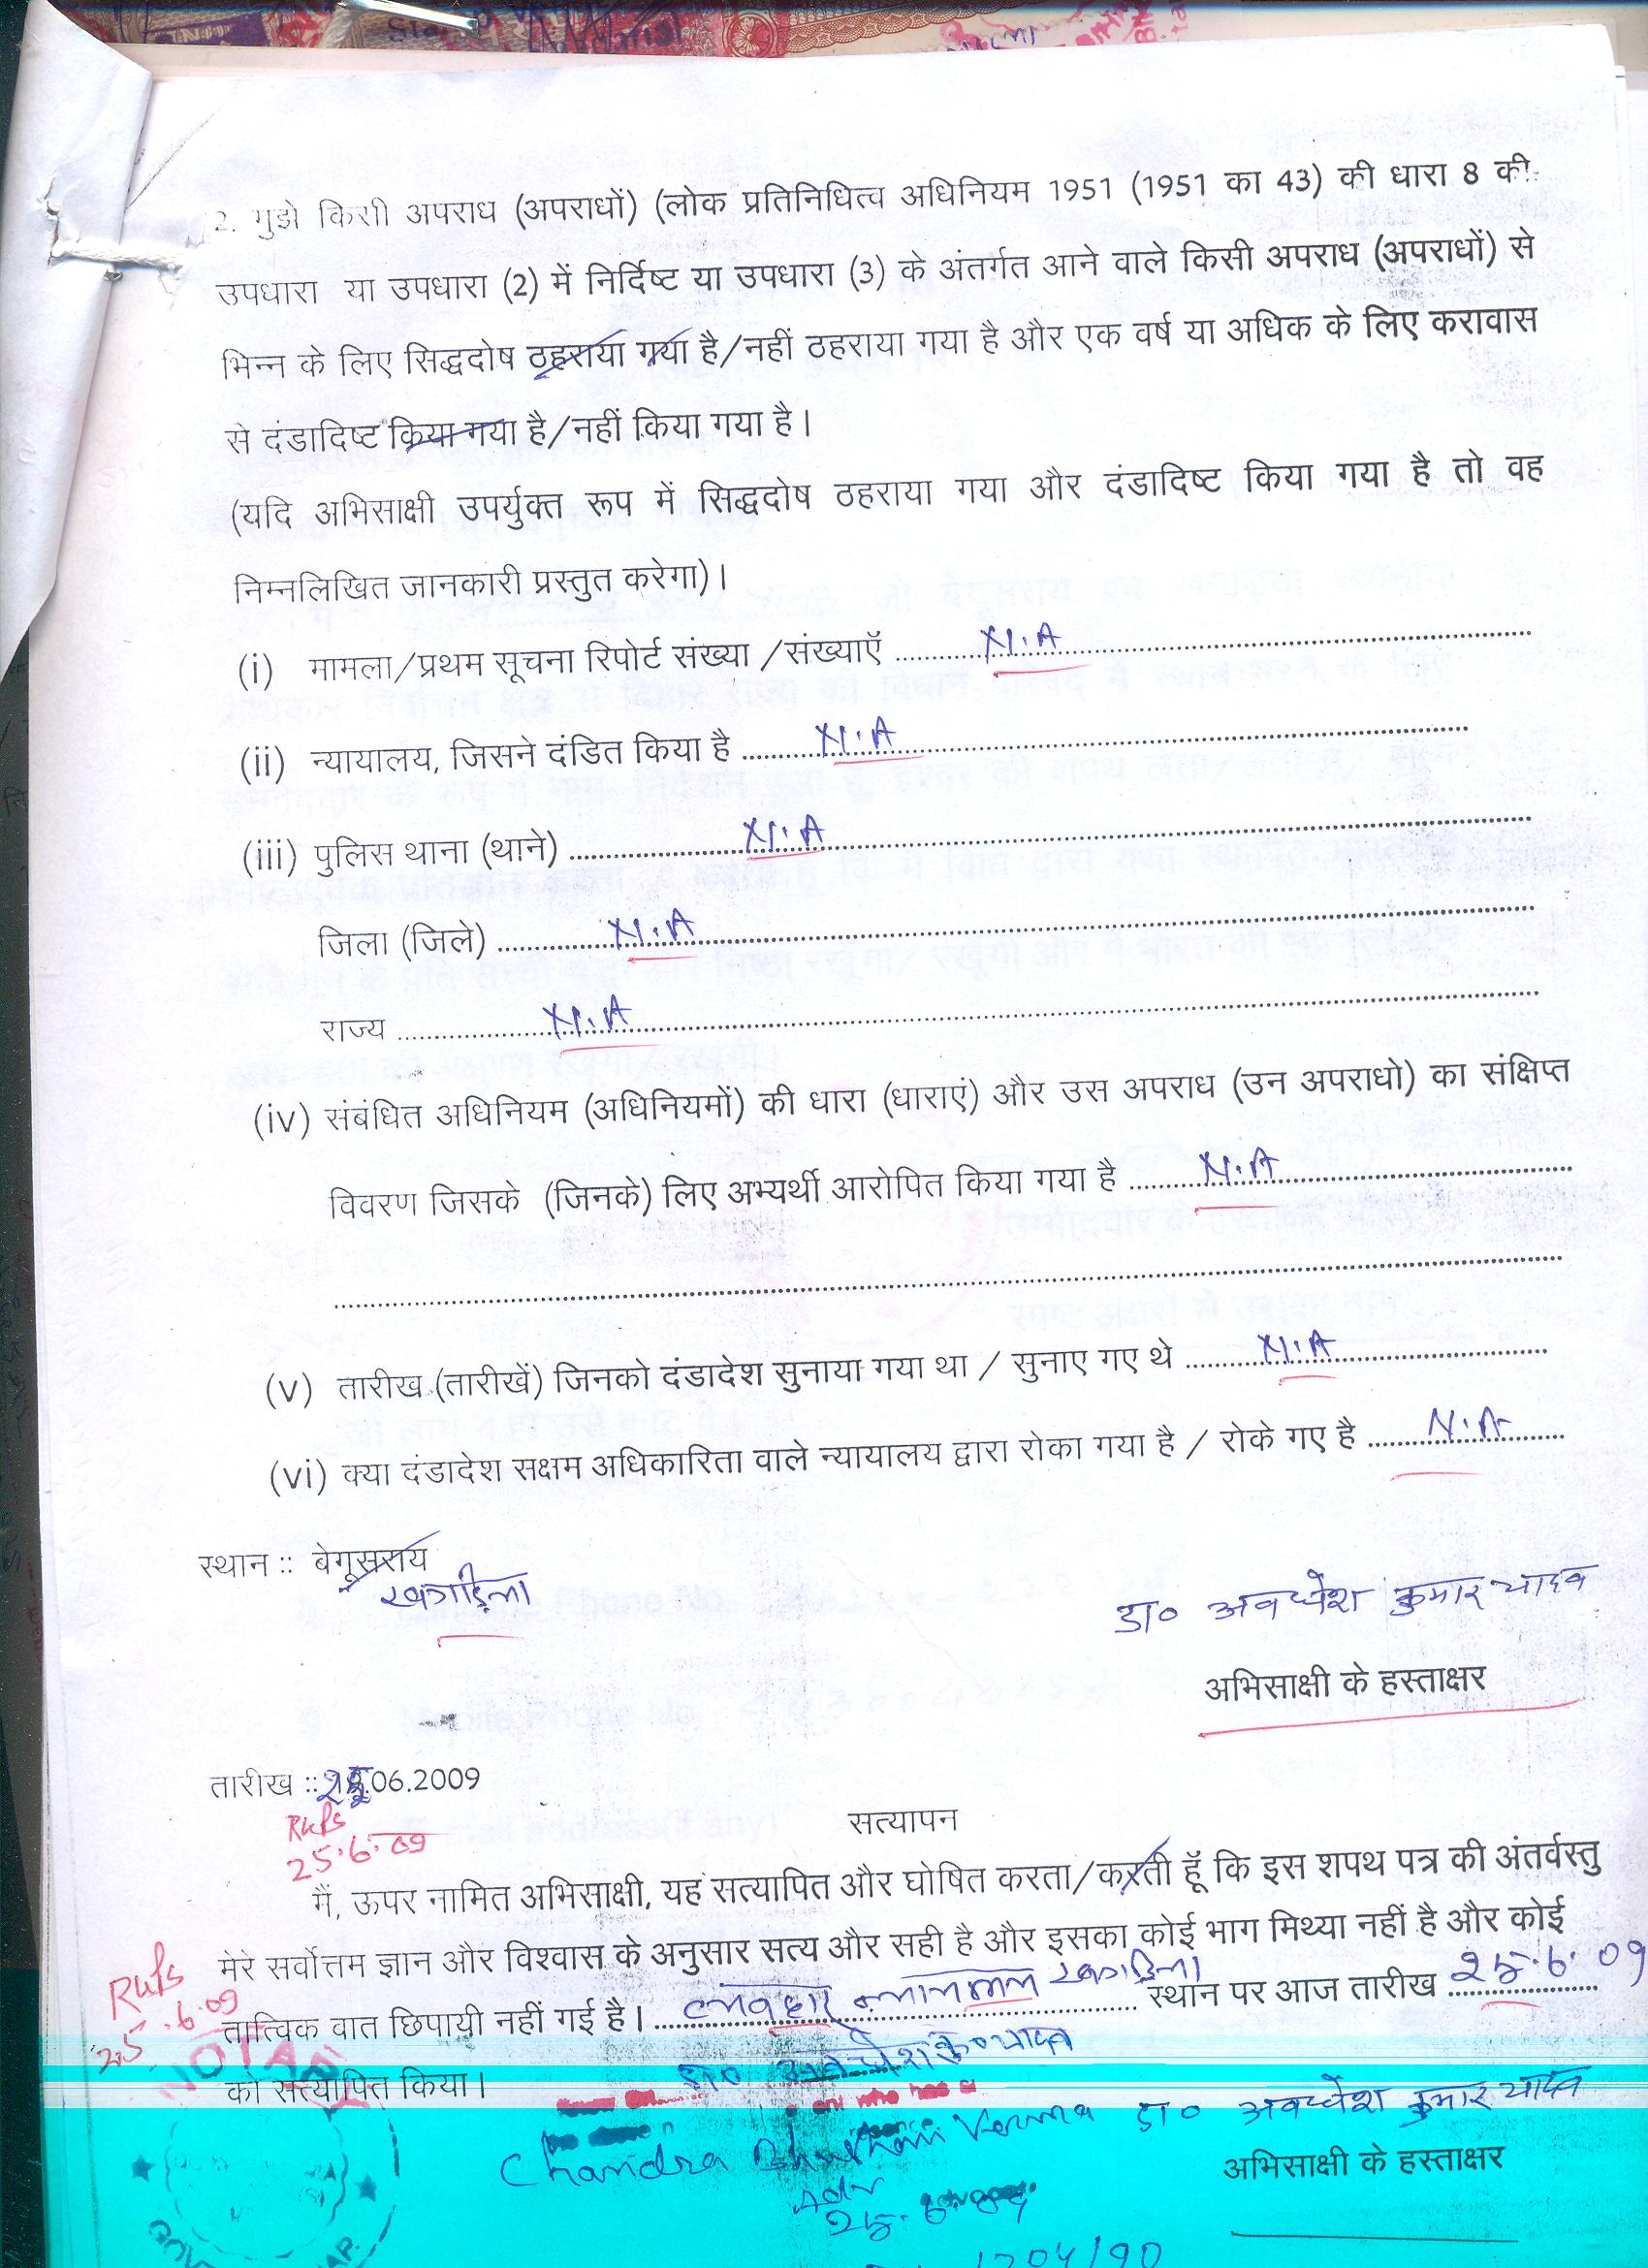 2. मुझे किसी अपराध (अपराधों) (लोक प्रतिनिधित्व अधिनियम 1951 (1951 का 43) की धारा 8 की
उपधारा या उपधारा (2) में निर्दिष्ट या उपधारा (3) के अंतर्गत आने वाले किसी अपराध (अपराधों) से
भिन्न के लिए सिद्धदोष ठहराया गया है/नहीं ठहराया गया है और एक वर्ष या अधिक के लिए करावास
से दंडादिष्ट किया गया है/नहीं किया गया है।
(यदि अभिसाक्षी उपर्युक्त रूप में सिद्धदोष ठहराया गया और दंडादिष्ट किया गया है तो वह
निम्नलिखित जानकारी प्रस्तुत करेगा)।
(i) मामला/प्रथम सूचना रिपोर्ट संख्या /संख्याएँ ..... N.A
(ii) न्यायालय, जिसने दंडित किया है ..... N.A
(iii) पुलिस थाना (थाने) ..... N.A
जिला (जिले) ..... N.A
राज्य ..... N.A
(iv) संबंधित अधिनियम (अधिनियमों) की धारा (धाराएं) और उस अपराध (उन अपराधो) का संक्षिप्त
विवरण जिसके (जिनके) लिए अभ्यर्थी आरोपित किया गया है ..... N.A
(v) तारीख (तारीखें) जिनको दंडादेश सुनाया गया था / सुनाए गए थे ..... N.A
(vi) क्या दंडादेश सक्षम अधिकारिता वाले न्यायालय द्वारा रोका गया है / रोके गए है ..... N.A
स्थान :: बेगूसराय
खगड़िया
डा० अवधेश कुमार यादव
अभिसाक्षी के हस्ताक्षर
तारीख :: .06.2009
25.6.09
सत्यापन
मैं, ऊपर नामित अभिसाक्षी, यह सत्यापित और घोषित करता/करती हूँ कि इस शपथ पत्र की अंतर्वस्तु
मेरे सर्वोत्तम ज्ञान और विश्वास के अनुसार सत्य और सही है और इसका कोई भाग मिथ्या नहीं है और कोई
तात्विक वात छिपायी नहीं गई है। ..... व्यवहार न्यायालय खगड़िया स्थान पर आज तारीख 25.6.09
25.6.09
NOTARY
को सत्यापित किया।
डा० अवधेश कु० यादव
who has
Chandra Bhushan Verma
डा० अवधेश कुमार यादव
Adv
25.6.09
अभिसाक्षी के हस्ताक्षर
1204/90